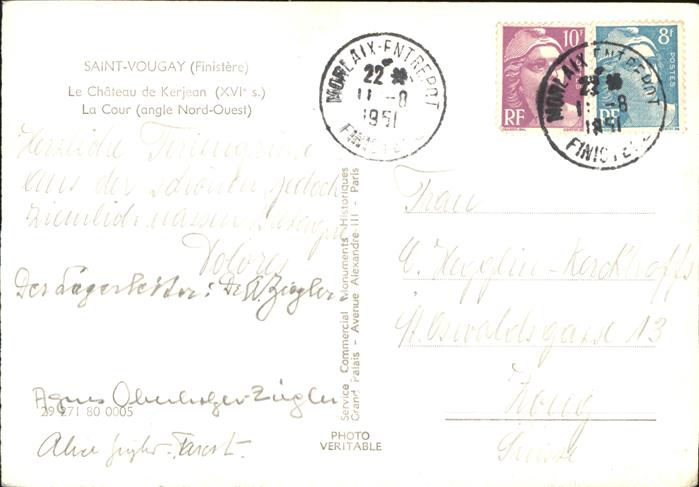 SAINT-VOUGAY (Finistère)
Le Château de Kerjean (XVIᵉ s.)
La Cour (angle Nord-Ouest)
Herzliche Feriengrüsse
aus der schönen, jedoch
ziemlich nassen Bretagne
Dolores
Der Lagerleiter: Dr W. Ziegler
Agnes Oberholzer-Ziegler
29 271 80 0005
Alice Ziegler-
Service Commercial Monuments Historiques
Grand Palais - Avenue Alexandre III - Paris
PHOTO
VERITABLE
MORLAIX-ENTREPOT
22
11-8
1951
FINISTERE
10F
RF
8F
POSTES
RF
MORLAIX-ENTREPOT
22
11-8
1951
FINISTERE
Frau
C. Hegglin-Kerckhoffs
St. Oswaldsgasse 13
Zoug
Suisse